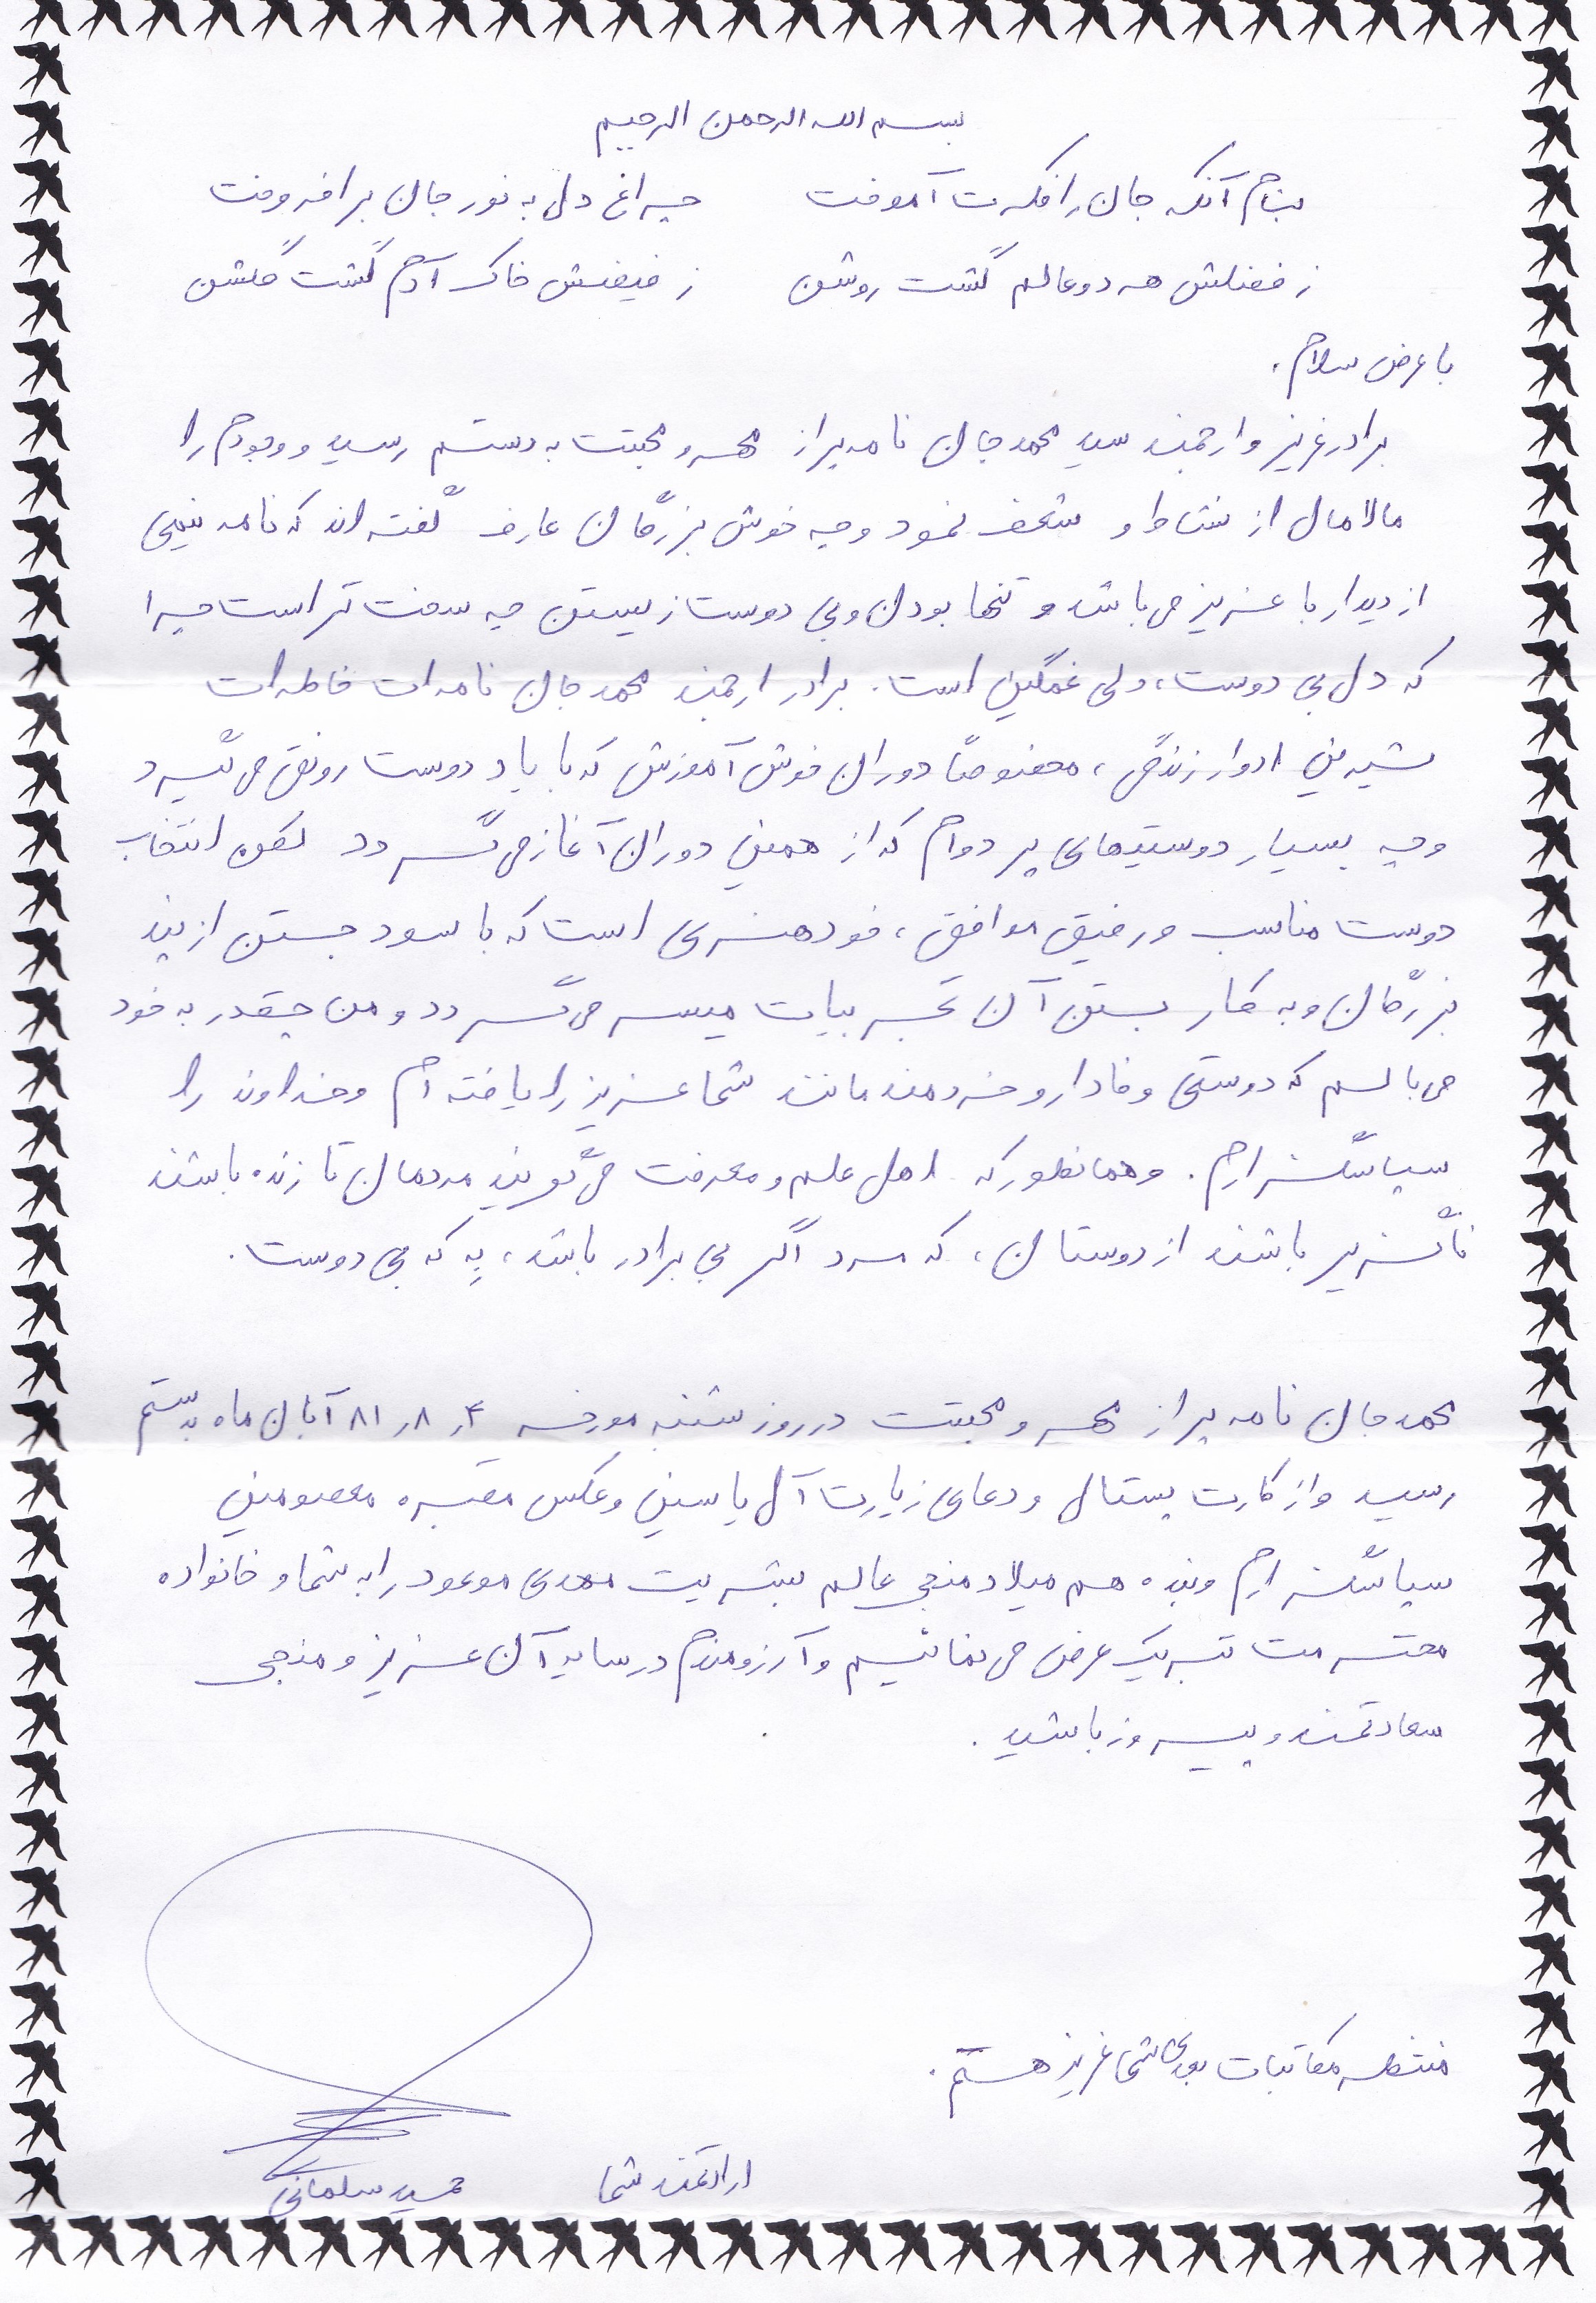 بسم الله الرحمن الرحیم
بنام آنکه جان را فکرت آموخت چراغ دل به نور جان برافروخت
ز فضلش هر دو عالم گشت روشن ز فیضش خاک آدم گشت گلشن
با عرض سلام.
برادر عزیز و ارجمند سید محمد جان نامه پر از مهر و محبتت به دستم رسید و وجودم را
مالامال از نشاط و شعف نمود و چه خوش بزرگان عارف گفته اند که نامه نیمی
از دیدار با عزیز می باشد و تنها بودن و بی دوست زیستن چه سخت تر است چرا
که دل بی دوست، دلی غمگین است. برادر ارجمند محمد جان نامه ات خاطره ات
شیرین ادوار زندگی، مخصوصاً دوران خوش آموزش که با یاد دوست رونق می گیرد
و چه بسیار دوستیهای پر دوام که از همین دوران آغاز می گردد لکن انتخاب
دوست مناسب و رفیق موافق، خود هنری است که با سود جستن از پند
بزرگان و به کار بستن آن تجربیات میسر می گردد و من چقدر به خود
می بالم که دوستی وفادار و خردمند مانند شما عزیز را یافته ام و خداوند را
سپاسگزارم. و همانطور که اهل علم و معرفت می گویند مردمان تا زنده باشند
ناگزیر باشند از دوستان، که مرد اگر بی برادر باشد، بِه که بی دوست.
محمد جان نامه پر از مهر و محبتت در روز شنبه مورخه ۴ر۸ر۸۱ آبان ماه بدستم
رسید و از کارت پستال و دعای زیارت آل یاسین و عکس مقبره معصومین
سپاسگزارم و بنده هم میلاد منجی عالم بشریت مهدی موعود را به شما و خانواده
محترمت تبریک عرض می نمائیم و آرزومندم در سایه آن عزیز و منجی
سعادتمند و پیروز باشید.
منتظر مکاتبات بعدی شما عزیز هستم.
ارادتمند شما حمید سلمانی